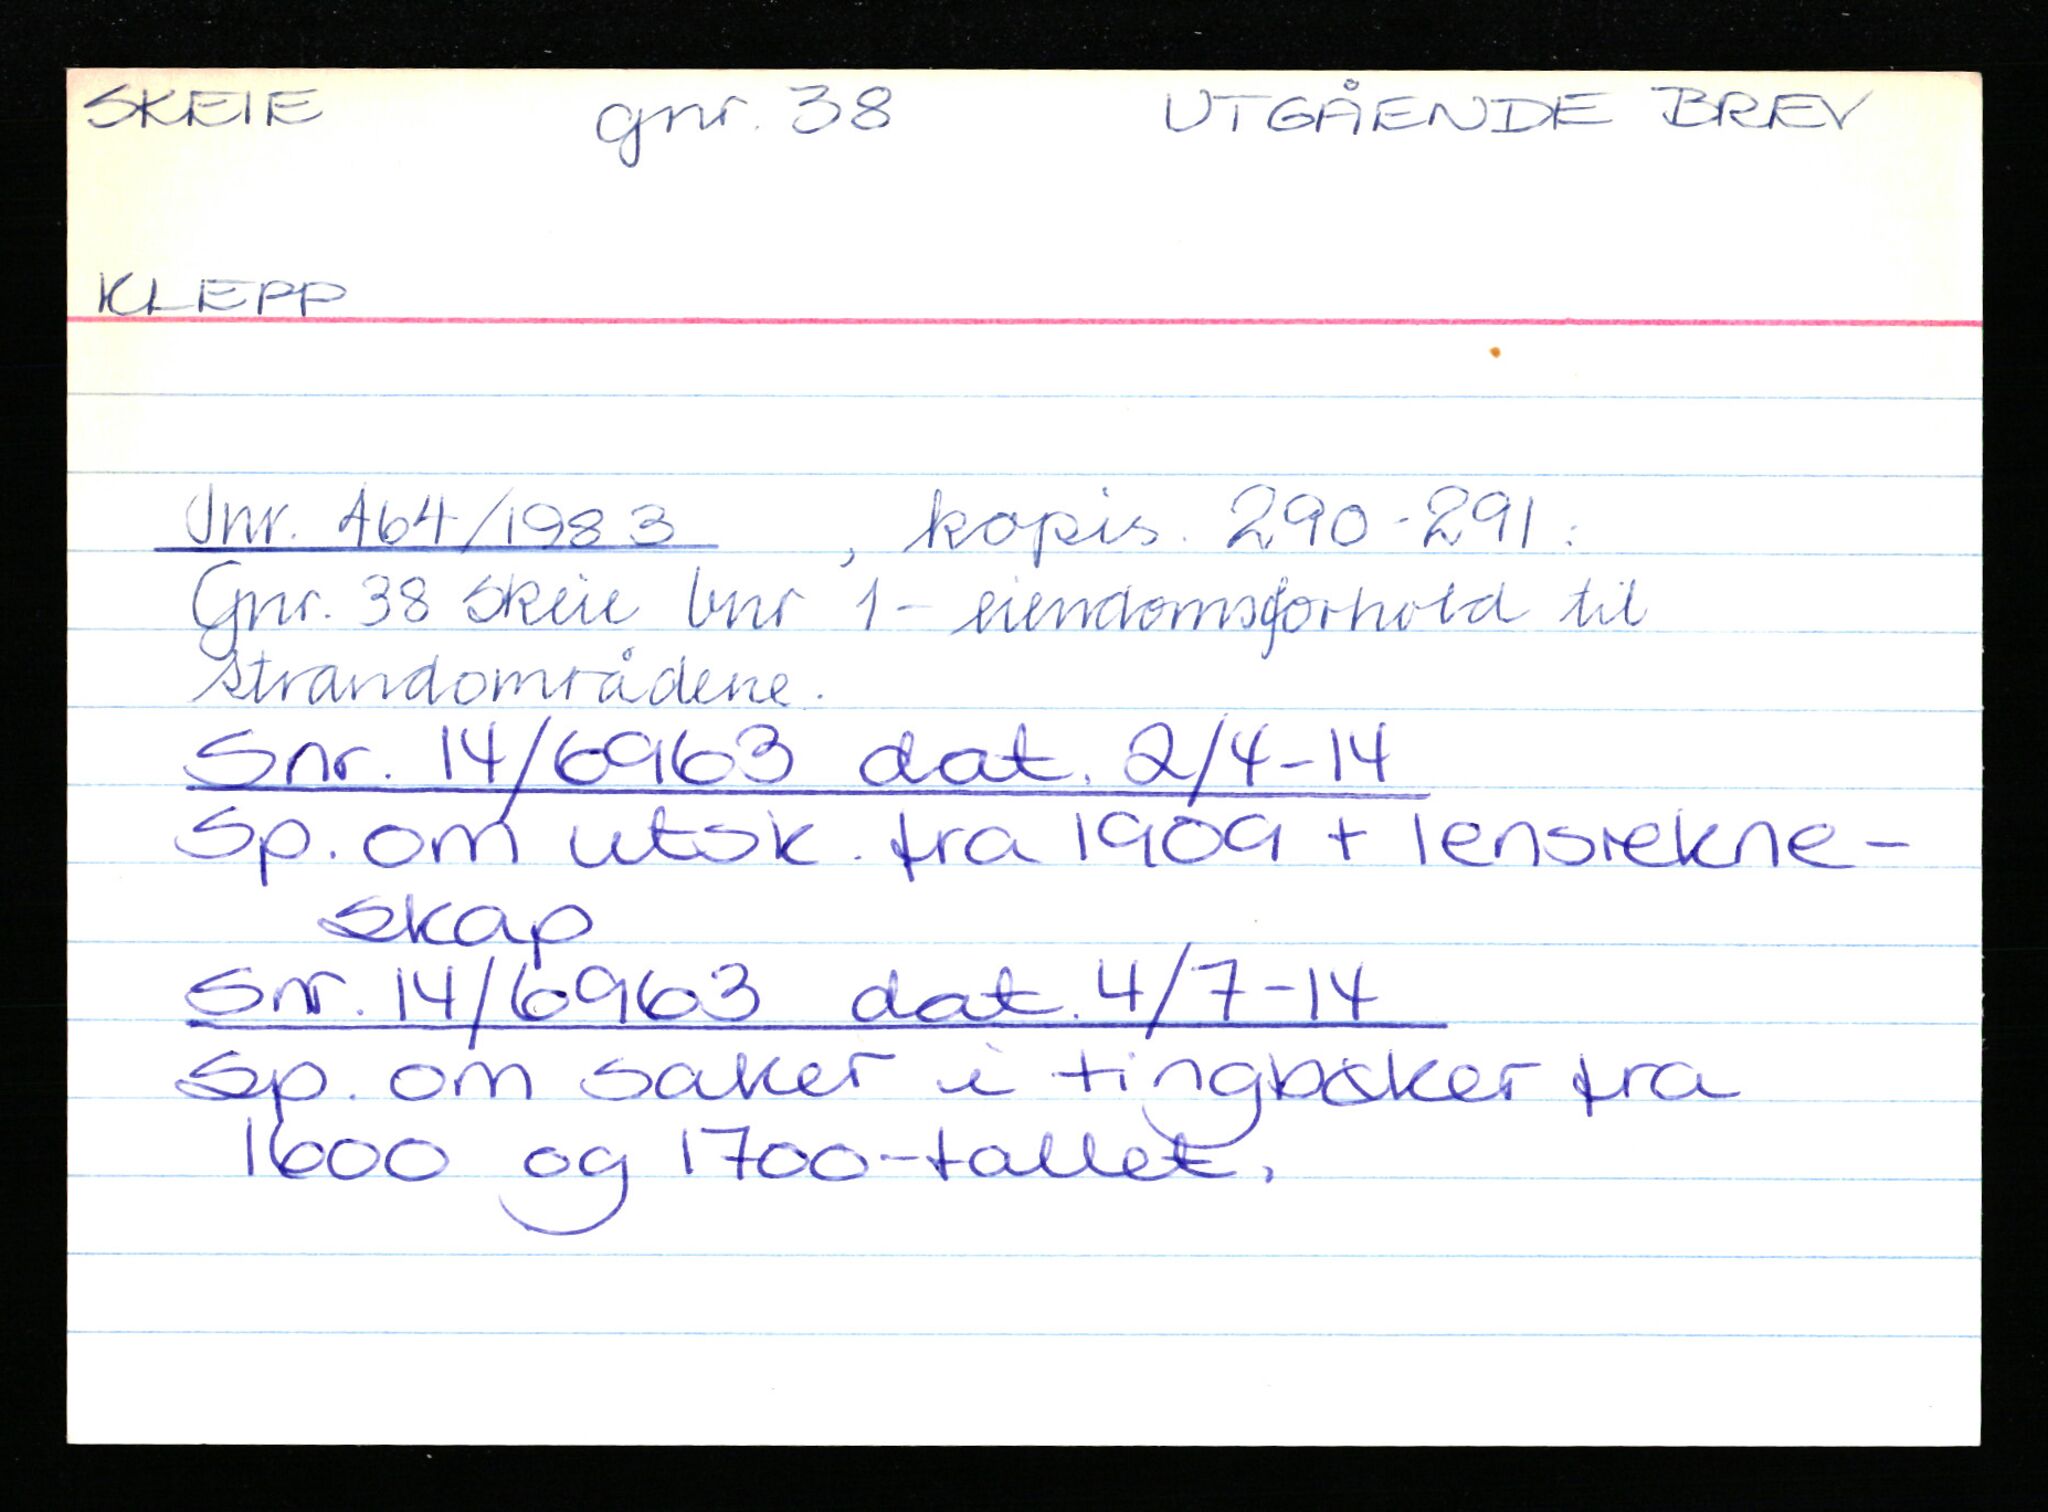 SKEIE gnr. 38 UTGÅENDE BREV
KLEPP
Jnr. 464/1983, kopis. 290-291:
Gnr. 38 Skeie bnr 1 - eiendomsforhold til
strandområdene.
Snr. 14/6963 dat. 2/4-14
Sp. om utsk. fra 1909 + lensrekne-
skap
Snr. 14/6963 dat. 4/7-14
Sp. om saker i tingbøker fra
1600 og 1700-tallet.